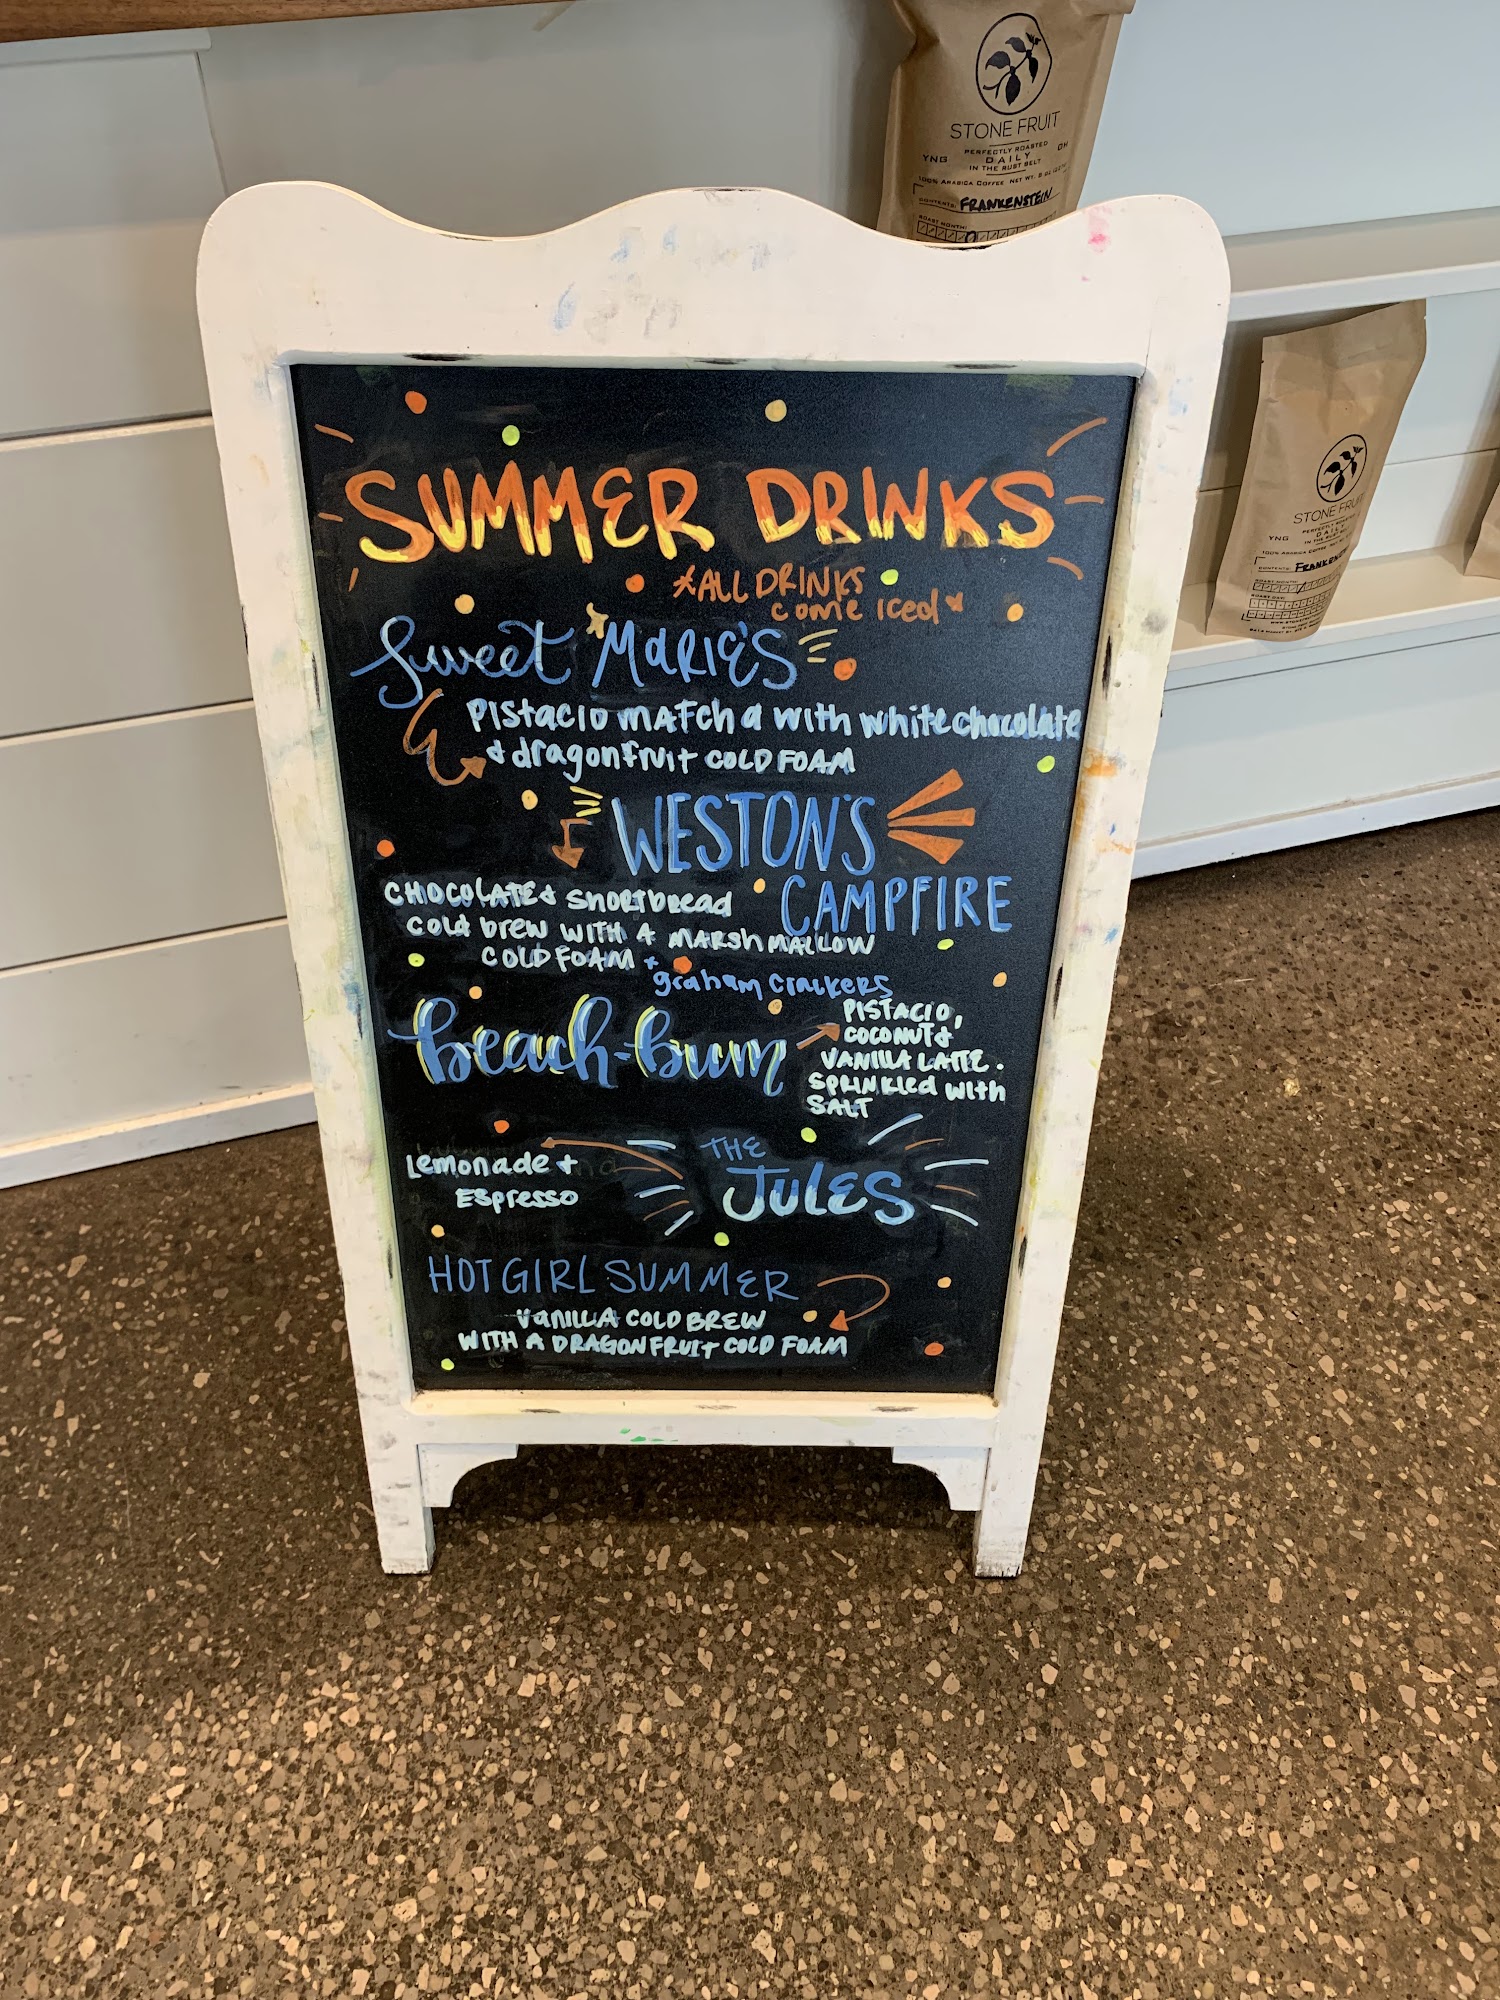 STONE FRUIT
PERFECTLY ROASTED
YNG DAILY OH
IN THE RUST BELT
100% ARABICA COFFEE NET WT.
CONTENTS: FRANKENSTEIN
ROAST MONTH:
STONE FRUIT
PERFECTLY ROASTED
YNG DAILY
IN THE RUST BELT
100% ARABICA COFFEE
CONTENTS: FRANKENSTEIN
ROAST MONTH:
SUMMER DRINKS
*ALL DRINKS
come iced*
Sweet MARIE'S
PISTACIO MATCHA with white chocolate
& dragonfruit COLD FOAM
WESTON'S
CAMPFIRE
CHOCOLATE & SHORTbread
cold brew WITH A MARSHMALLOW
COLD FOAM +
graham crackers
beach-bum
PISTACIO,
COCONUT &
VANILLA LATTE.
SPRINKled with
SALT
THE
JULES
Lemonade +
Espresso
HOT GIRL SUMMER
VANILLA COLD BREW
WITH A DRAGONFRUIT COLD FOAM